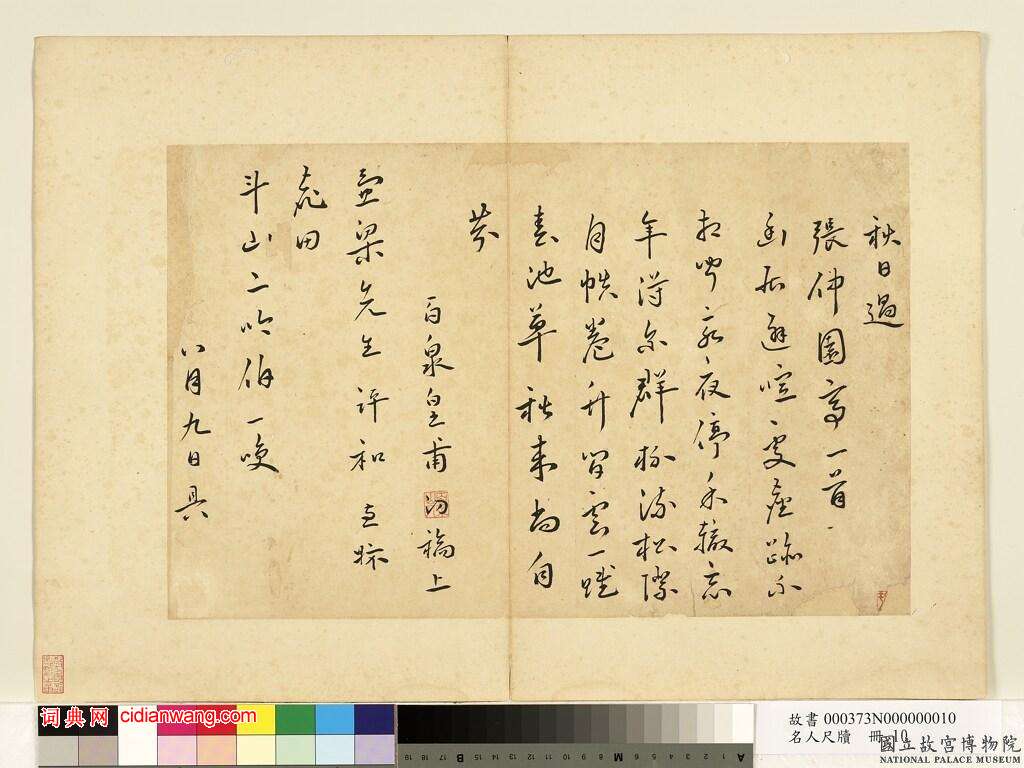 秋日過
張仲園亭一首
幽居避喧處塵跡不
相聞夜停轍忘
年得爾群松際
月帙卷竹間雲一
春池草秋來尚自
芬
百泉皇甫汸稿上
梁先生評和
田
斗山二吟伯一
八月九日具
词典网 cidianwang.com
故書 000373N000000010
名人尺牘 冊 10
國立故宮博物院
NATIONAL PALACE MUSEUM